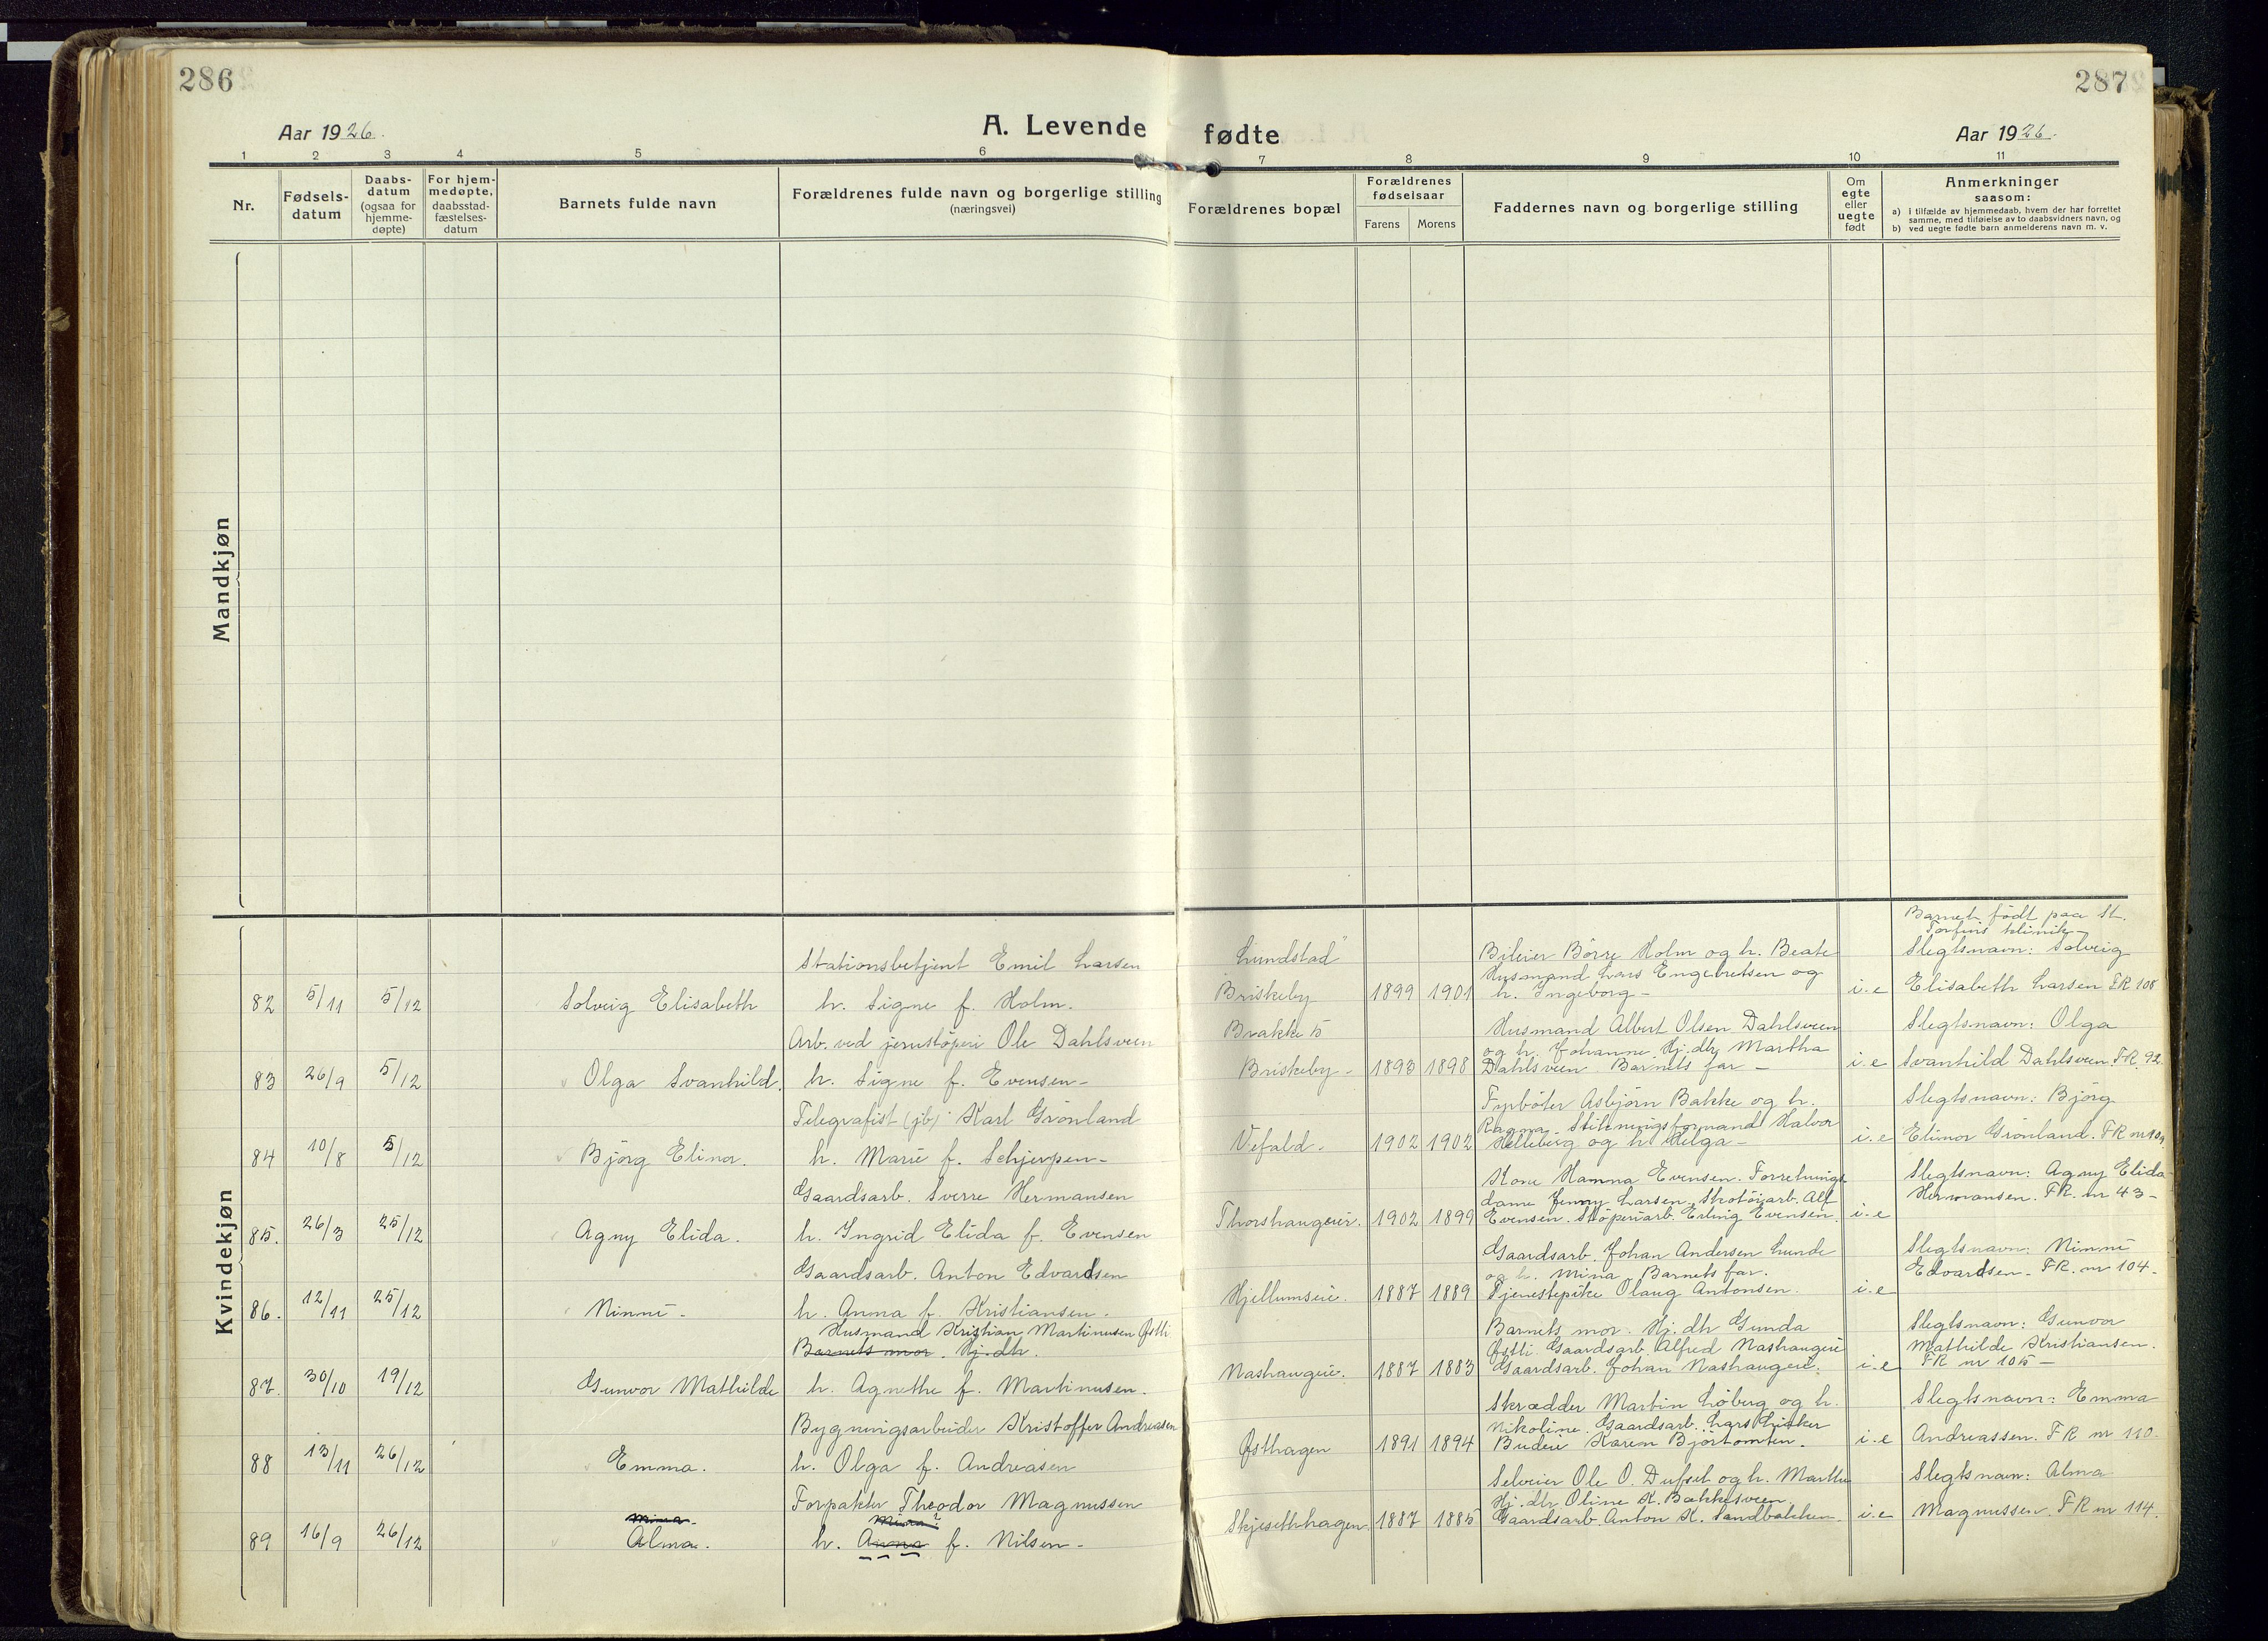 286
287
Aar 1926.
A. Levende fødte
Aar 1926.
1 2 3 4 5 6 7 8 9 10 11
Nr.
Fødsels-
datum
Daabs-
datum
(ogsaa for
hjemme-
døpte)
For hjem-
medøpte,
daabsstad-
fæstelses-
datum
Barnets fulde navn
Forældrenes fulde navn og borgerlige stilling
(næringsvei)
Forældrenes bopæl
Forældrenes
fødselsaar
Farens Morens
Faddernes navn og borgerlige stilling
Om
egte
eller
uegte
født
Anmerkninger
saasom:
a) i tilfælde av hjemmedaab, hvem der har forrettet
samme, med tilføielse av to daabsvidners navn, og
b) ved uegte fødte barn anmelderens navn m. v.
Mandkjøn
Kvindekjøn
82 5/11 5/12 Solveig Elisabeth
Stationsbetjent Emil Larsen
h. Signe f. Holm.
Lundstad
Briskeby 1899 1901
Bileier Börre Holm og h. Beate
Husmand Lars Engebretsen og
h. Ingeborg –
i.e
Barnet födt paa St.
Torfins klinik –
Slegtsnavn: Solveig
Elisabeth Larsen FR 108
83 26/9 5/12 Olga Svanhild.
Arb. ved jernstöperi Ole Dahlsveen
h. Signe f. Evensen –
Brakke 15
Briskeby – 1893 1898
Husmand Albert Olsen Dahlsveen
og h. Johanne. Hj. dtr Martha
Dahlsveen. Barnets far –
i.e
Slegtsnavn: Olga
Svanhild Dahlsveen. FR. 92
84 10/8 5/12 Björg Elinor.
Telegrafist (jb) Karl Grönland
h. Marie f. Schjerpen –
Vefald. 1902 1902
Fyrböter Asbjörn Bakke og h.
Ragna. formand Halvor
Helleberg og h. Helga –
i.e
Slegtsnavn: Björg
Elinor Grönland. FR nr 109
85. 26/3 25/12 Agny Elida.
Gaardsarb. Sverre Hermansen
h. Ingrid Elida f. Evensen
Thorshaugeie. 1902 1899
Kone Hanna Evensen. Forretnings
dame Jenny Larsen, Skotöiarb. Alf
Evensen. Stöperiarb. Erling Evensen.
i.e
Slegtsnavn: Agny Elida
Hermansen. FR. nr 43 –
86. 12/11 25/12 Nimmi –
Gaardsarb. Anton Edvardsen
h. Anna f. Kristiansen.
Hjellumseie. 1887 1889
Gaardsarb. Johan Andersen Lunde
og h. Mina. Barnets far.
Tjenestepike Olaug Antonsen.
i.e
Slegtsnavn: Nimmi
Edvardsen – FR. nr 104 –
87. 30/10 19/12 Gunvor Mathilde
Husmand Kristian Martinusen Østli
Barnets mor. Hj. dtr.
h. Agnethe f. Martinusen.
Nashaugeie. 1887 1883
Barnets mor. Hj. dtr Gunda
Østli. Gaardsarb. Alfred Nashaugeie
Gaardsarb. Johan Nashaugeie.
i.e
Slegtsnavn: Gunvor
Mathilde Kristiansen.
FR nr 105 –
88 13/11 26/12 Emma.
Bygningsarbeider Kristoffer Andreasen
h. Olga f. Andreasen
Østhagen 1891 1894
Skrædder Martin Löberg og h.
Nikoline. Gaardsarb. Lars
Budeie Karen Björtomten.
i.e
Slegtsnavn: Emma
Andreassen. FR nr 110
89 16/9 26/12
Mina.
Alma.
Forpakter Theodor Magnussen
Mina?
h. Anna f. Nilsen –
Skjesethhagen 1887 1885
Selveier Ole O. Dufset og h. Marthe
Hj. dtr Oline K. Bækkesveen.
Gaardsarb. Anton K. Sandbakken
i.e
Slegtsnavn: Alma
Magnussen. FR nr 114.